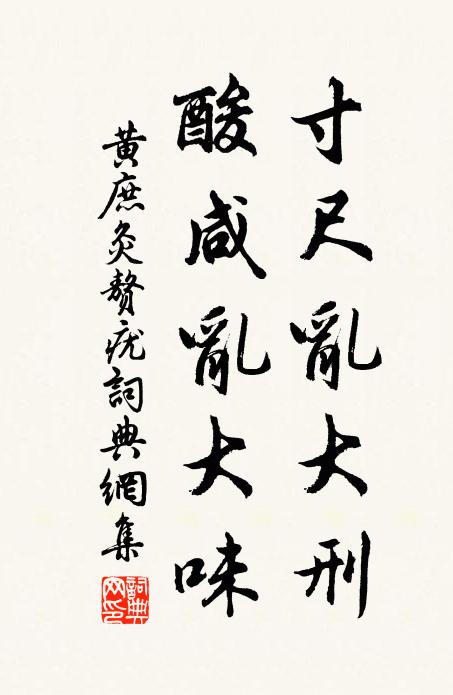 寸尺亂大刑
酸咸亂大味
黃庶灸贅疣詞典網集
詞典网印